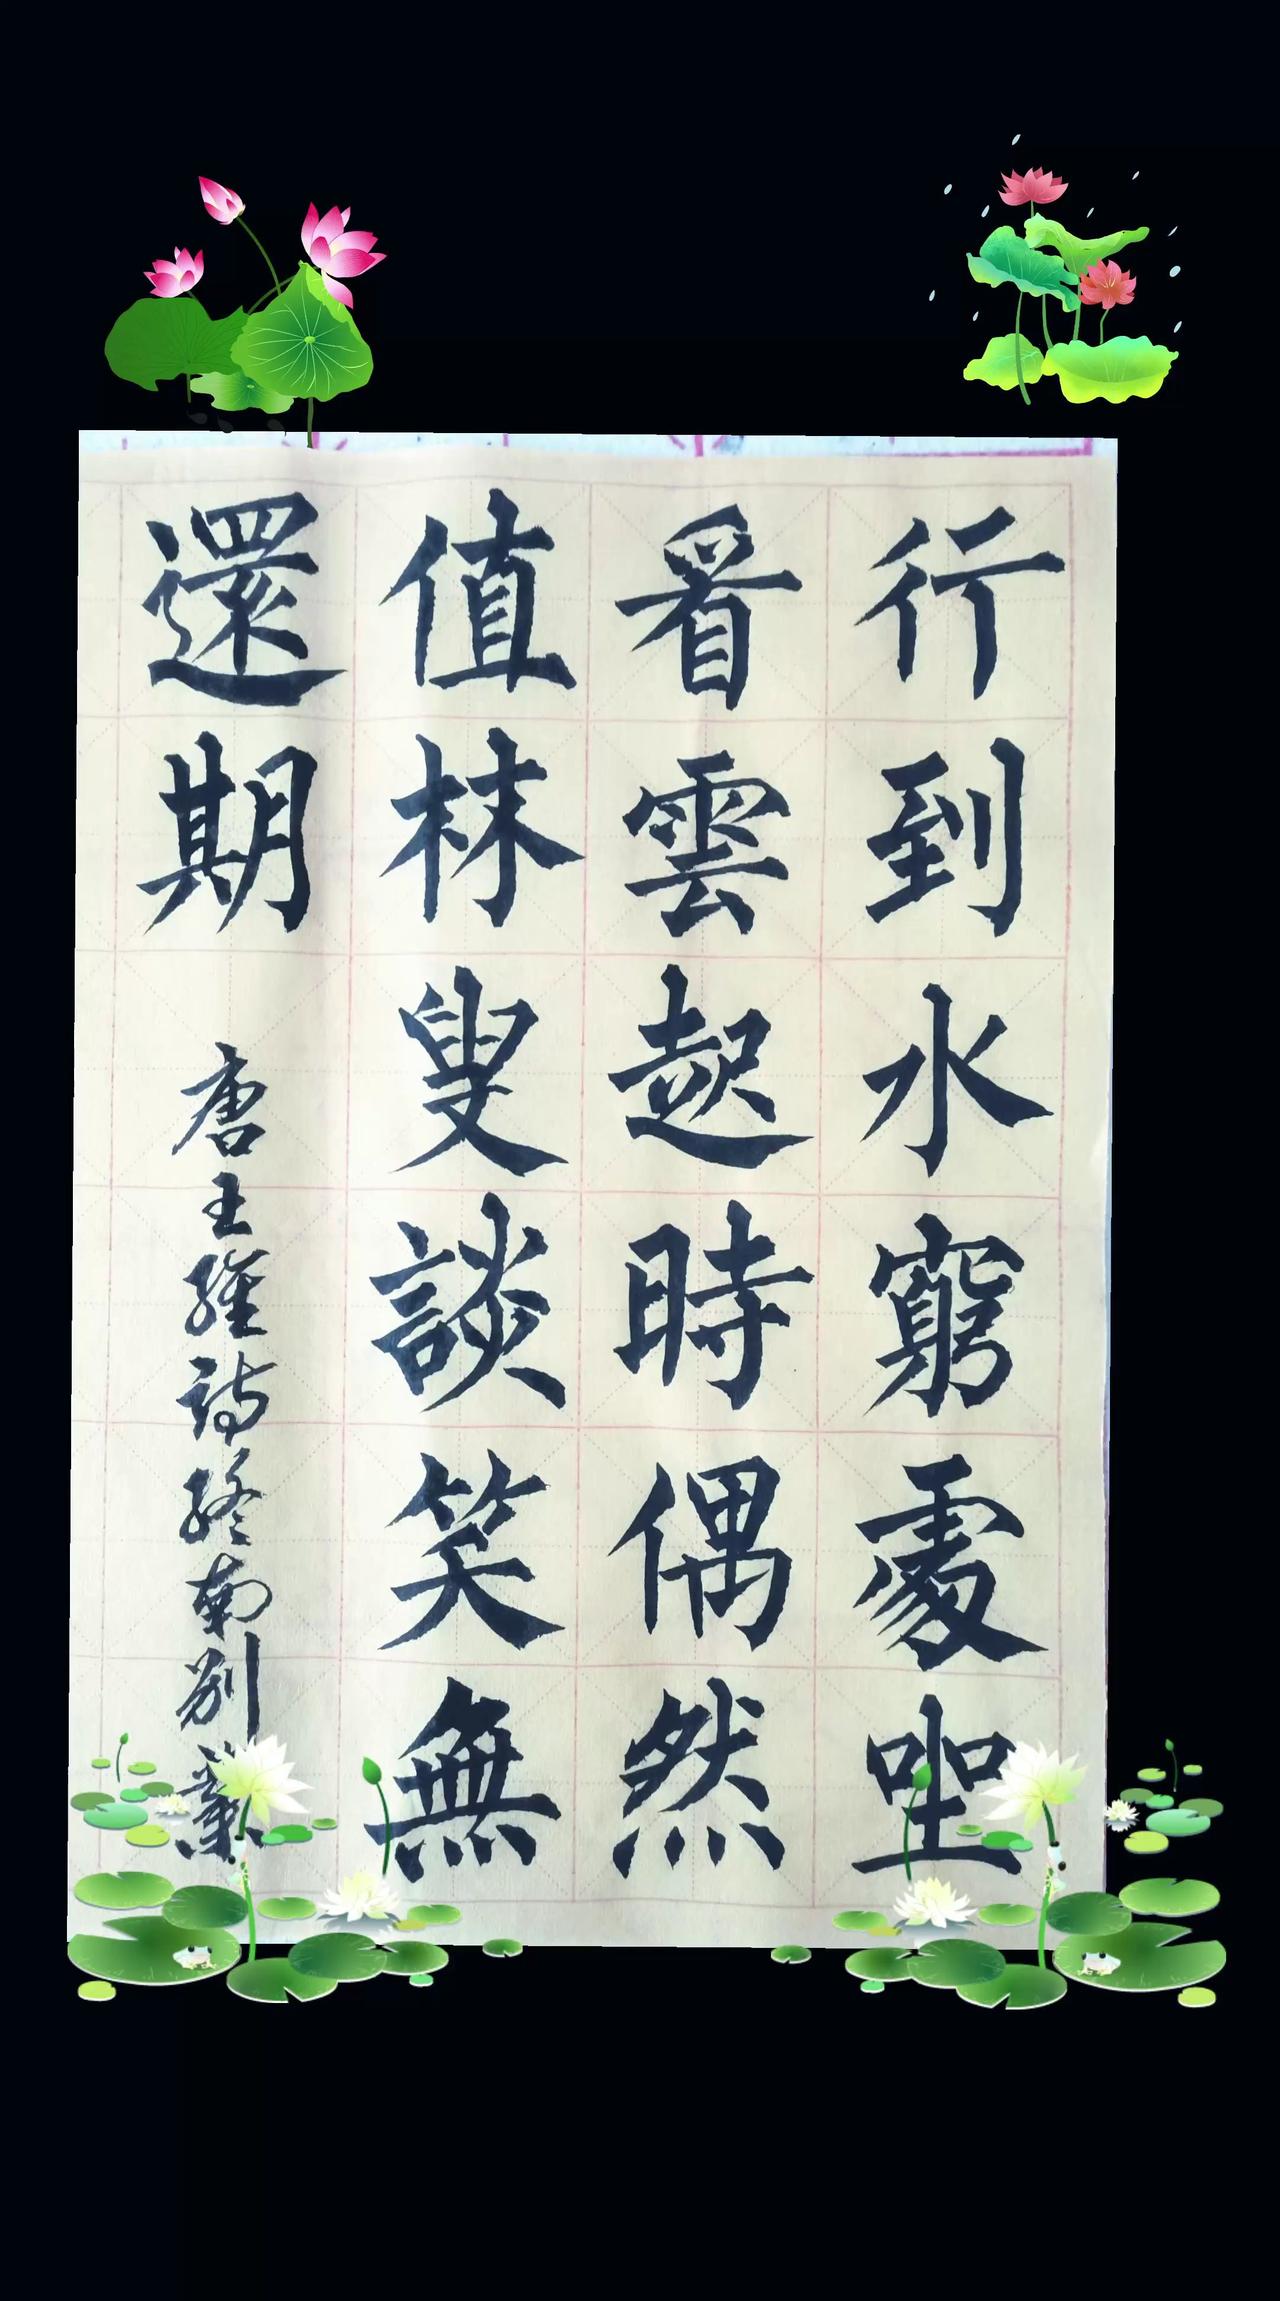 行到水窮處坐
看雲起時偶然
值林叟談笑無
還期
唐王維詩終南別業